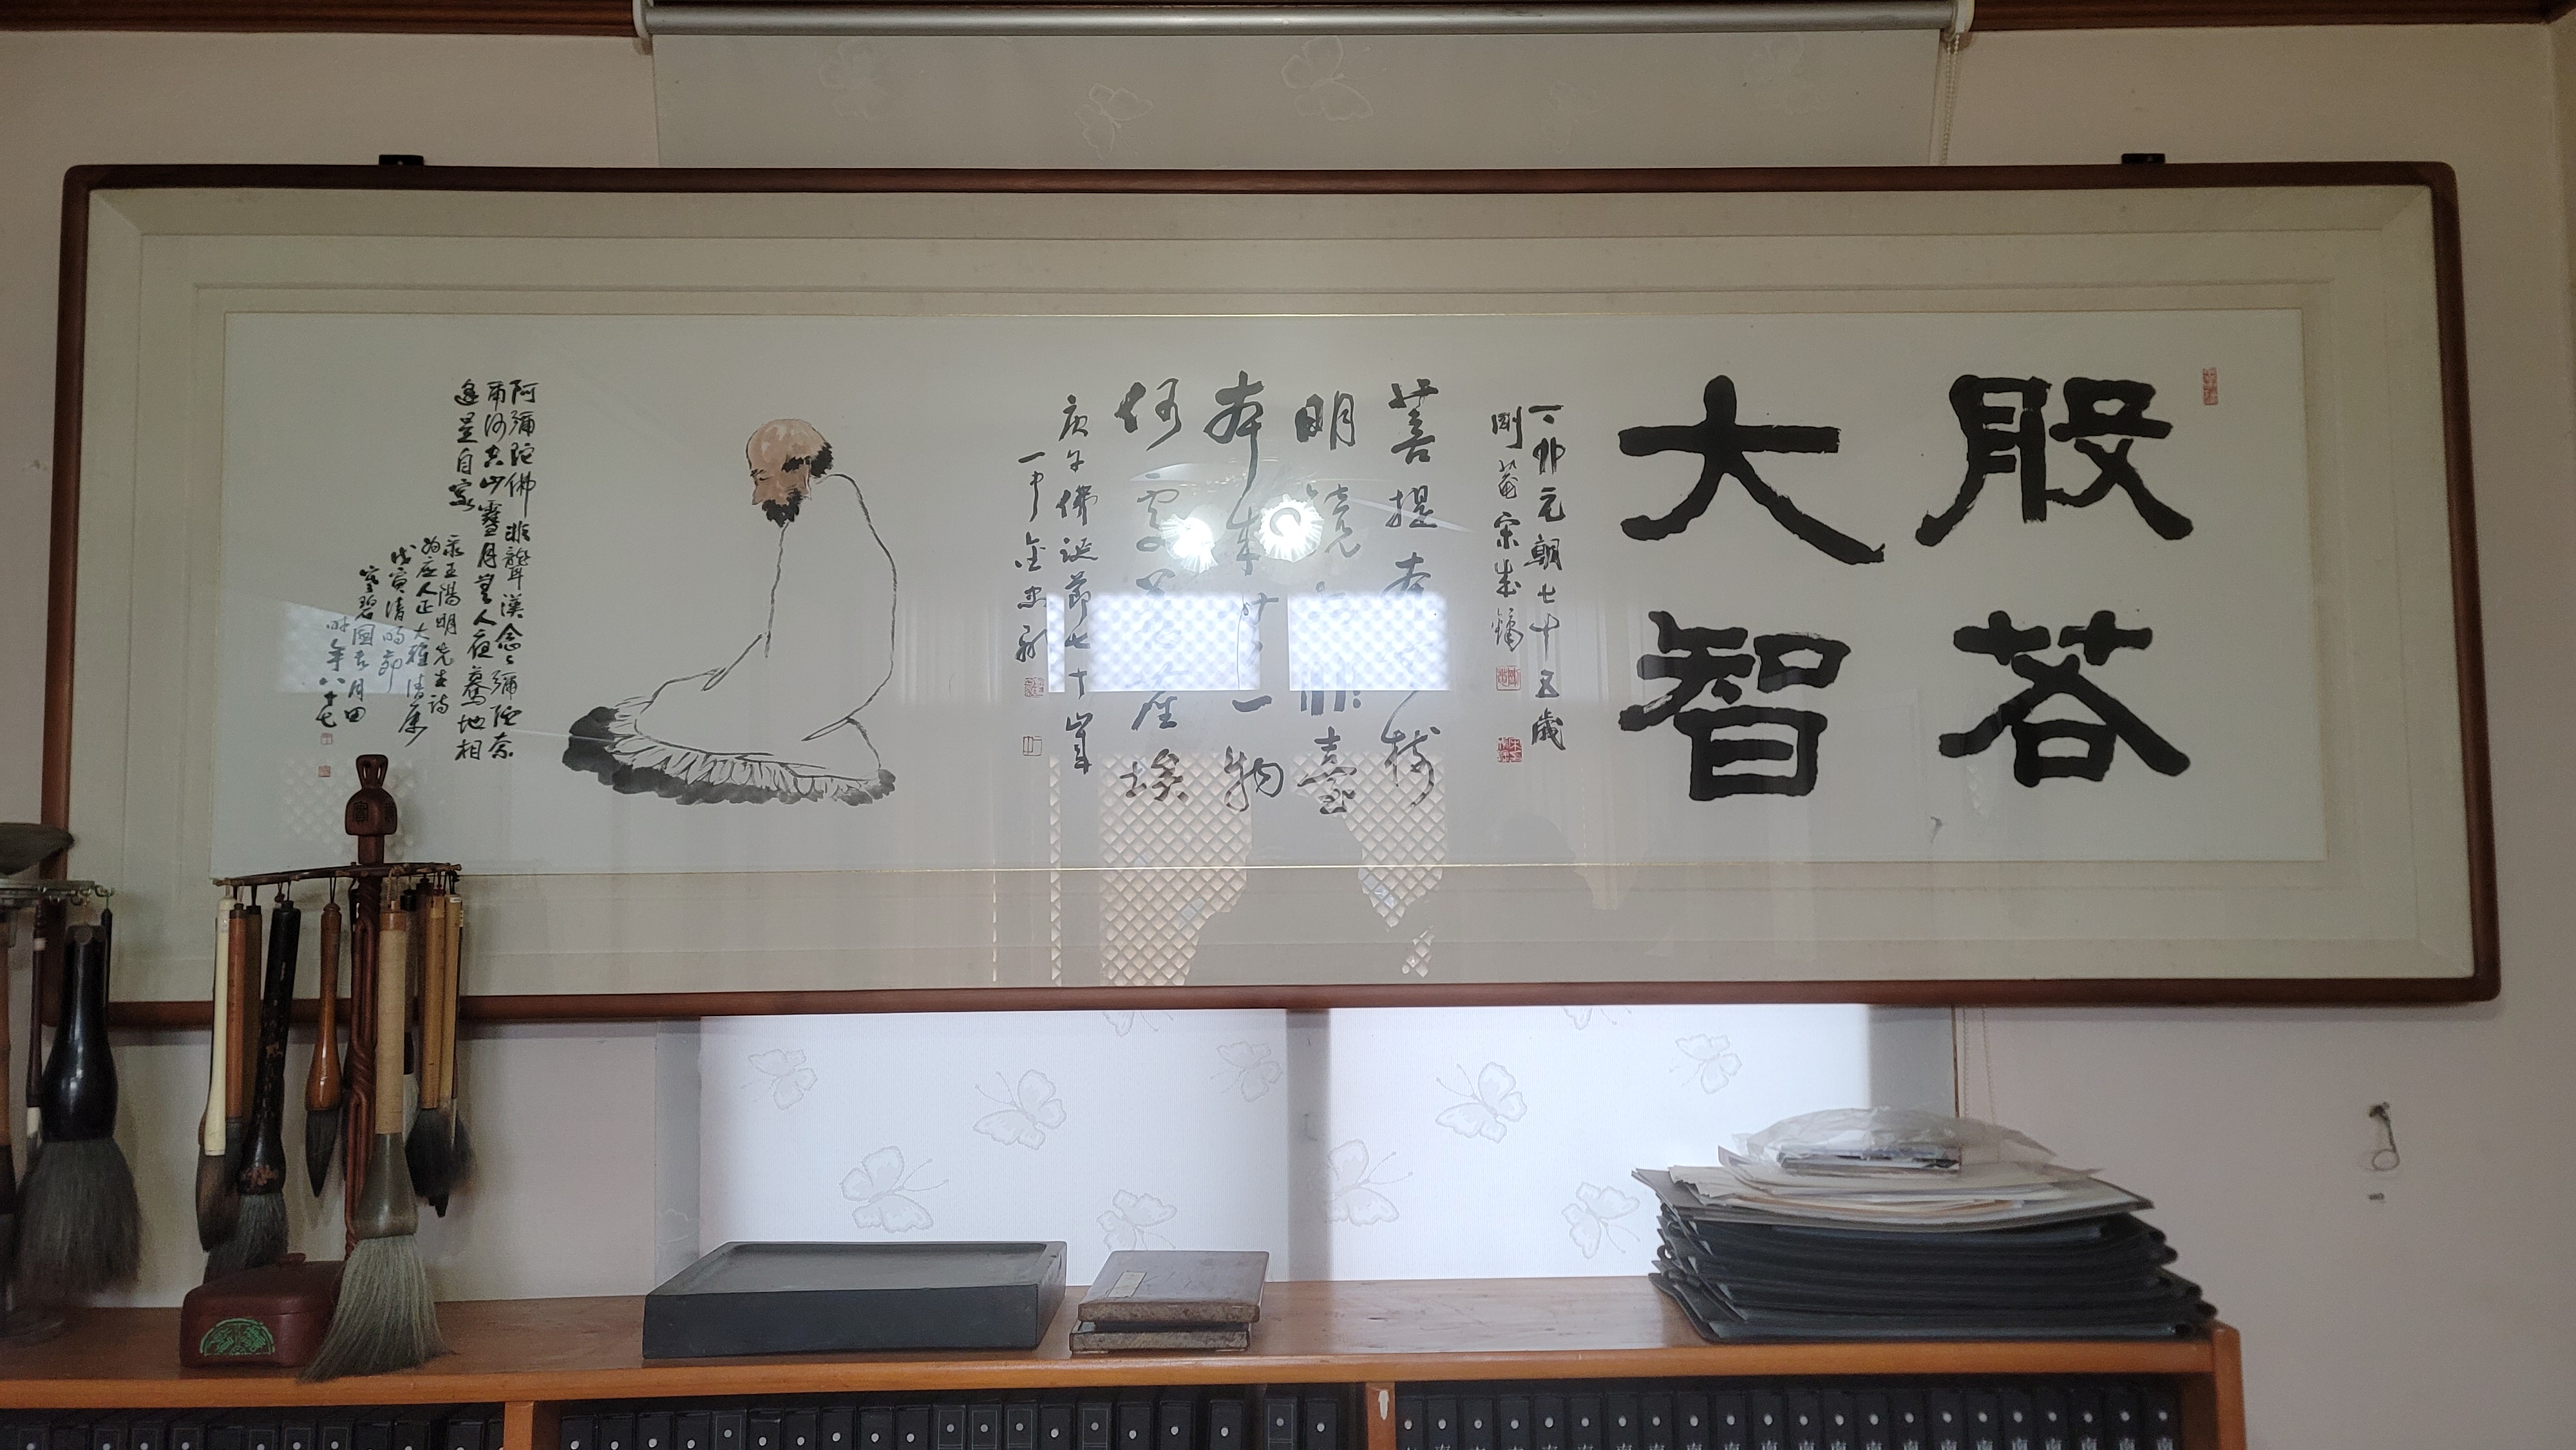 般若
大智
丁卯元朝七十五歲
剛菴宋成鏞
菩提本無樹
明鏡亦非臺
本來無一物
何處惹塵埃
庚午佛誕節七十叟
一中金忠顯
阿彌陀佛非聾漢念〻彌陀奈
爾何空山雪月無人夜驀地相
逢是自家
王陽明先生詩
人正大雅清屬
戊寅清明節
寒碧園月田
時年八十七